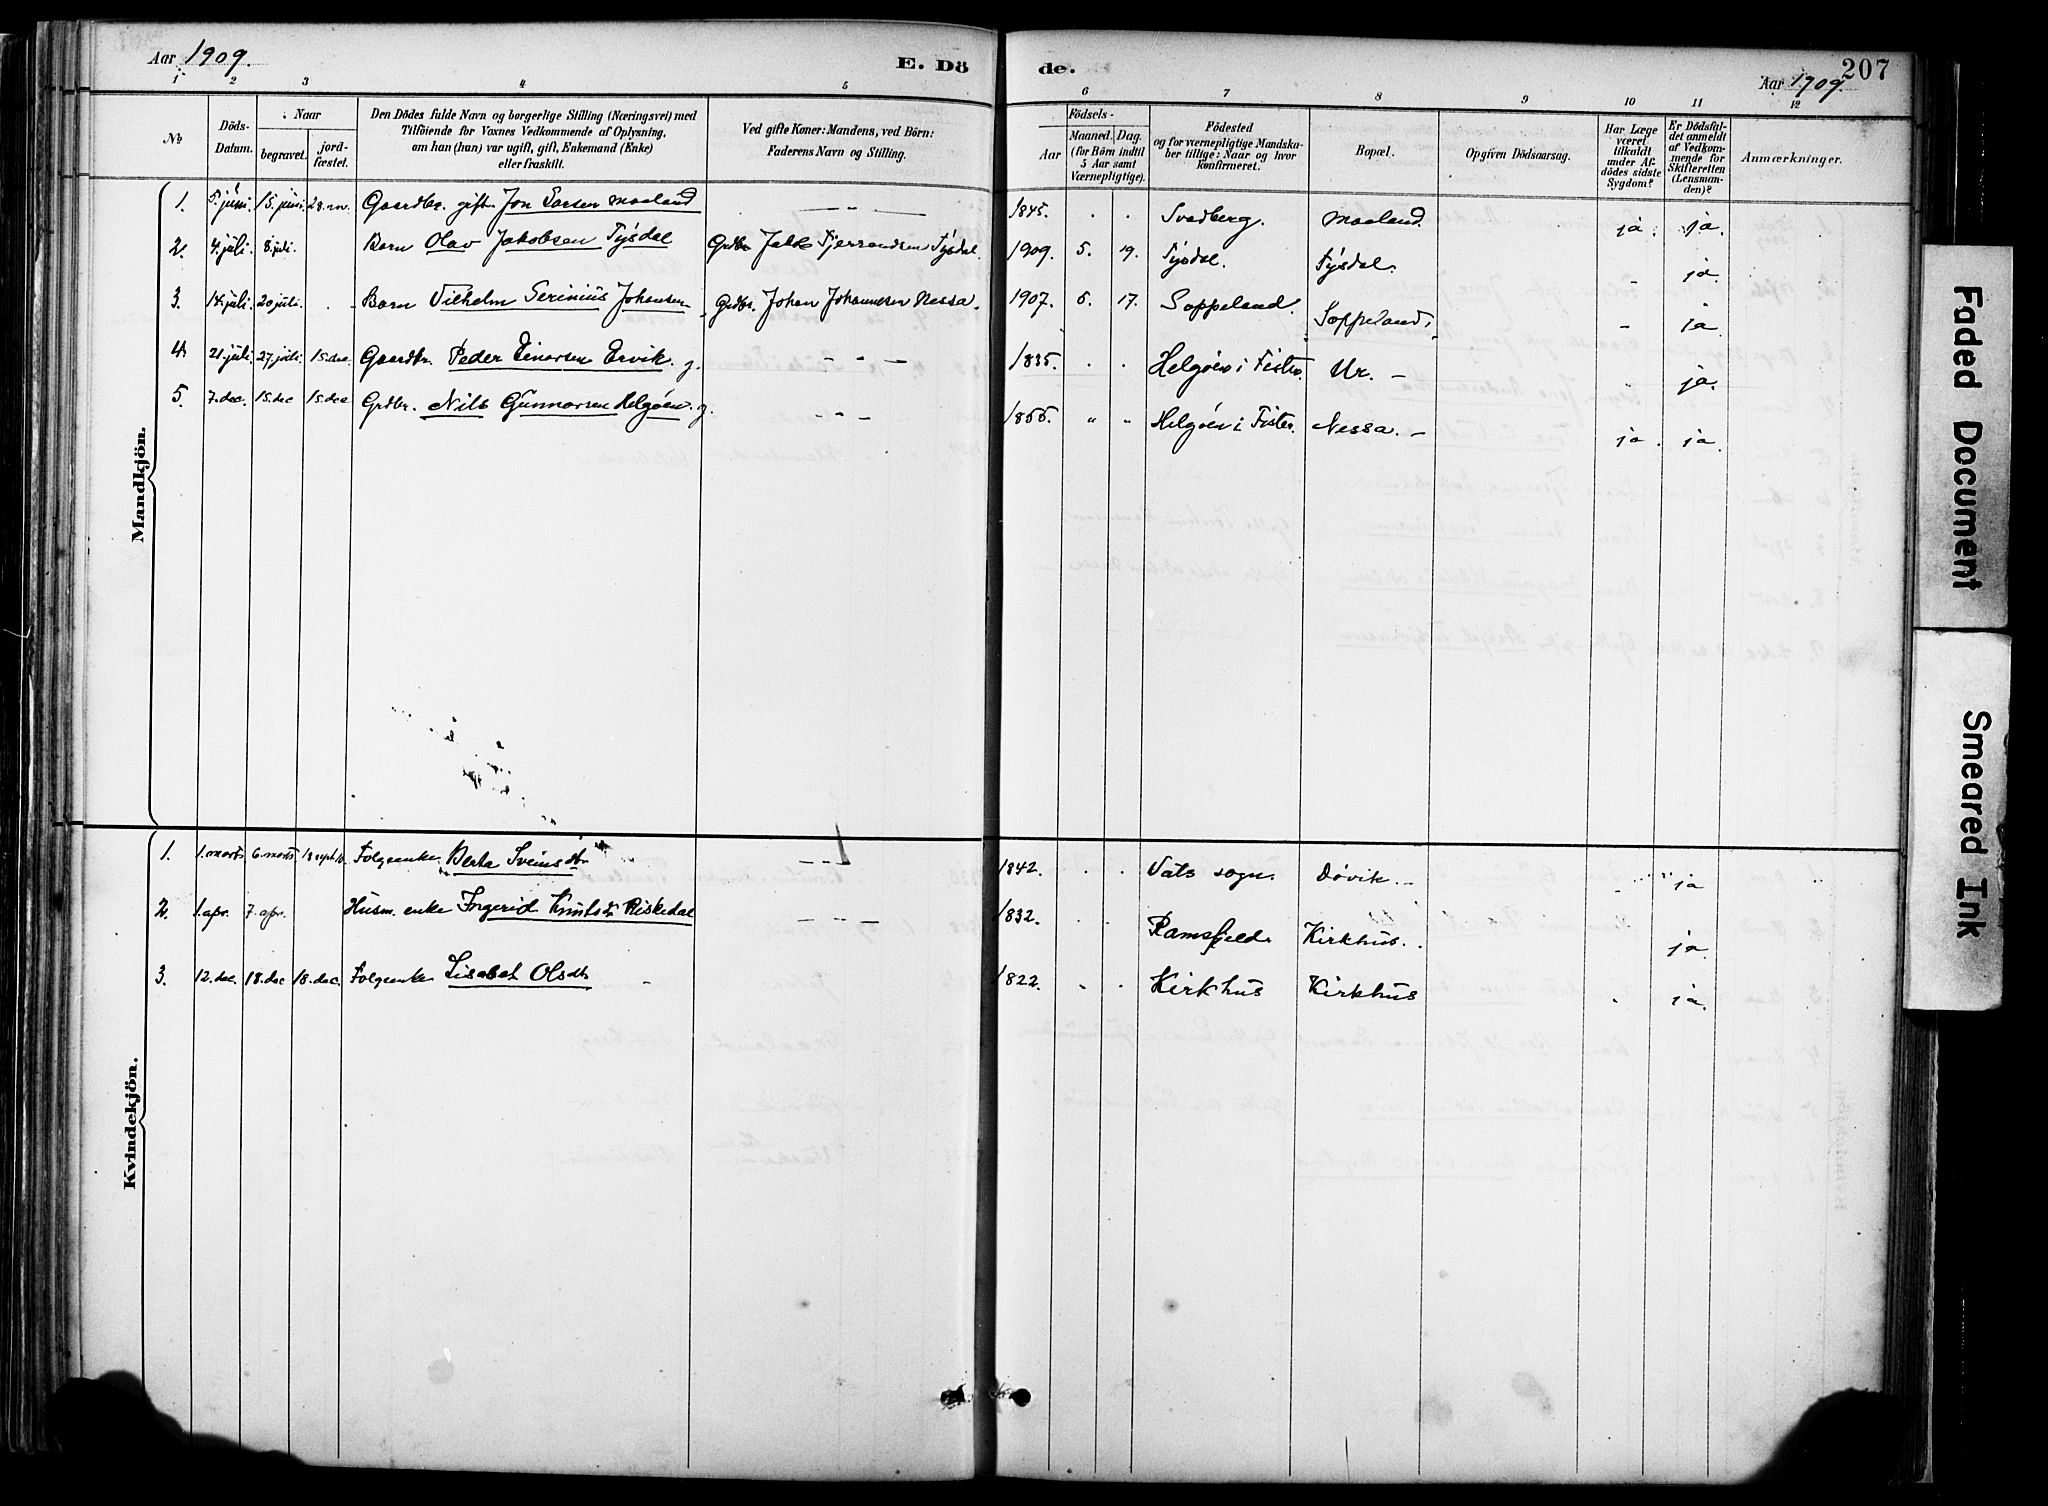 Aar 1909. E. Dö de. Aar 1909. 207
1 2 3 4 5 6 7 8 9 10 11 12
No. Döds-Datum. Naar begravet. jord-fæstet. Den Dödes fulde Navn og borgerlige Stilling (Næringsvei) med Tilföiende for Voxnes Vedkommende af Oplysning, om han (hun) var ugift, gift, Enkemand (Enke) eller fraskilt. Ved gifte Koner: Mandens, ved Börn: Faderens Navn og Stilling. Födsels- Aar Maaned. Dag. (for Börn indtil 5 Aar samt Værnepligtige). Födested og for værnepligtige Mandska-ber tillige: Naar og hvor konfirmeret. Bopæl. Opgiven Dödsaarsag. Har Læge været tilkaldt under Af-dödes sidste Sygdom? Er Dödsfal-det anmeldt af Vedkom-mende for Skifteretten (Lensman-den)? Anmærkninger.
Mandkjön.
1. 5. juni. 15. juni. 28. nov. Gaardbr. gift. Jon Larsen Maaland — — — 1845. Svadberg. Maaland. ja. ja.
2. 4. juli. 8. juli. Barn Olav Jakobsen Tysdal Grdbr. Jakob Tjerrandsen Tysdal. 1909. 5. 19. Tysdal. Tysdal. - ja
3. 14. juli. 20 juli. Barn Vilhelm Serinius Johansen Grdbr. Johan Johannesen Nessa. 1907. 5. 17. Soppeland. Soppeland. - ja
4. 21. juli. 27. juli. 15. dec. Gaardbr. Peder Einarsen Ervik. g. - - - 1835. Helgøen i Fister. Ur. - ja.
5. 7. dec. 15. dec 15. dec Grdbr. Nils Gunnarsen Helgøen. g. - - - 1855. " " Helgøen i Fister. Nessa. - ja. ja.
Kvindekjön.
1. 1. marts 6. marts. 18 sept. Folgeenke. Berta Sveinsdtr. - - - 1842. Vats sogn. Døvik. - ja
2. 1. apr. 7. apr. Husm. enke Ingerid Knutsd. Riskedal - - - 1832. Ramsfjeld. Kirkhus. ja.
3. 12. dec. 18. dec 18. dec. Folgeenke Lisabet Olsdtr. - 1822. Kirkhus Kirkhus ja.
Faded Document
Smeared Ink